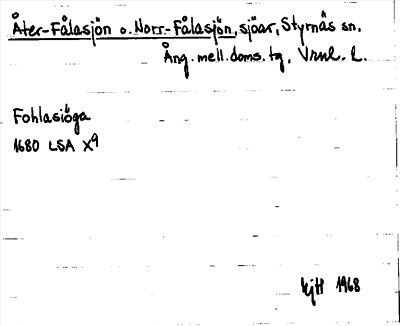 Åter-Fålasjön o. Norr-Fålasjön, sjöar, Styrnäs sn.
Ång. mell. doms. tg, Vrnl. L.
Fohlasiöga
1680 LSA X9
1968